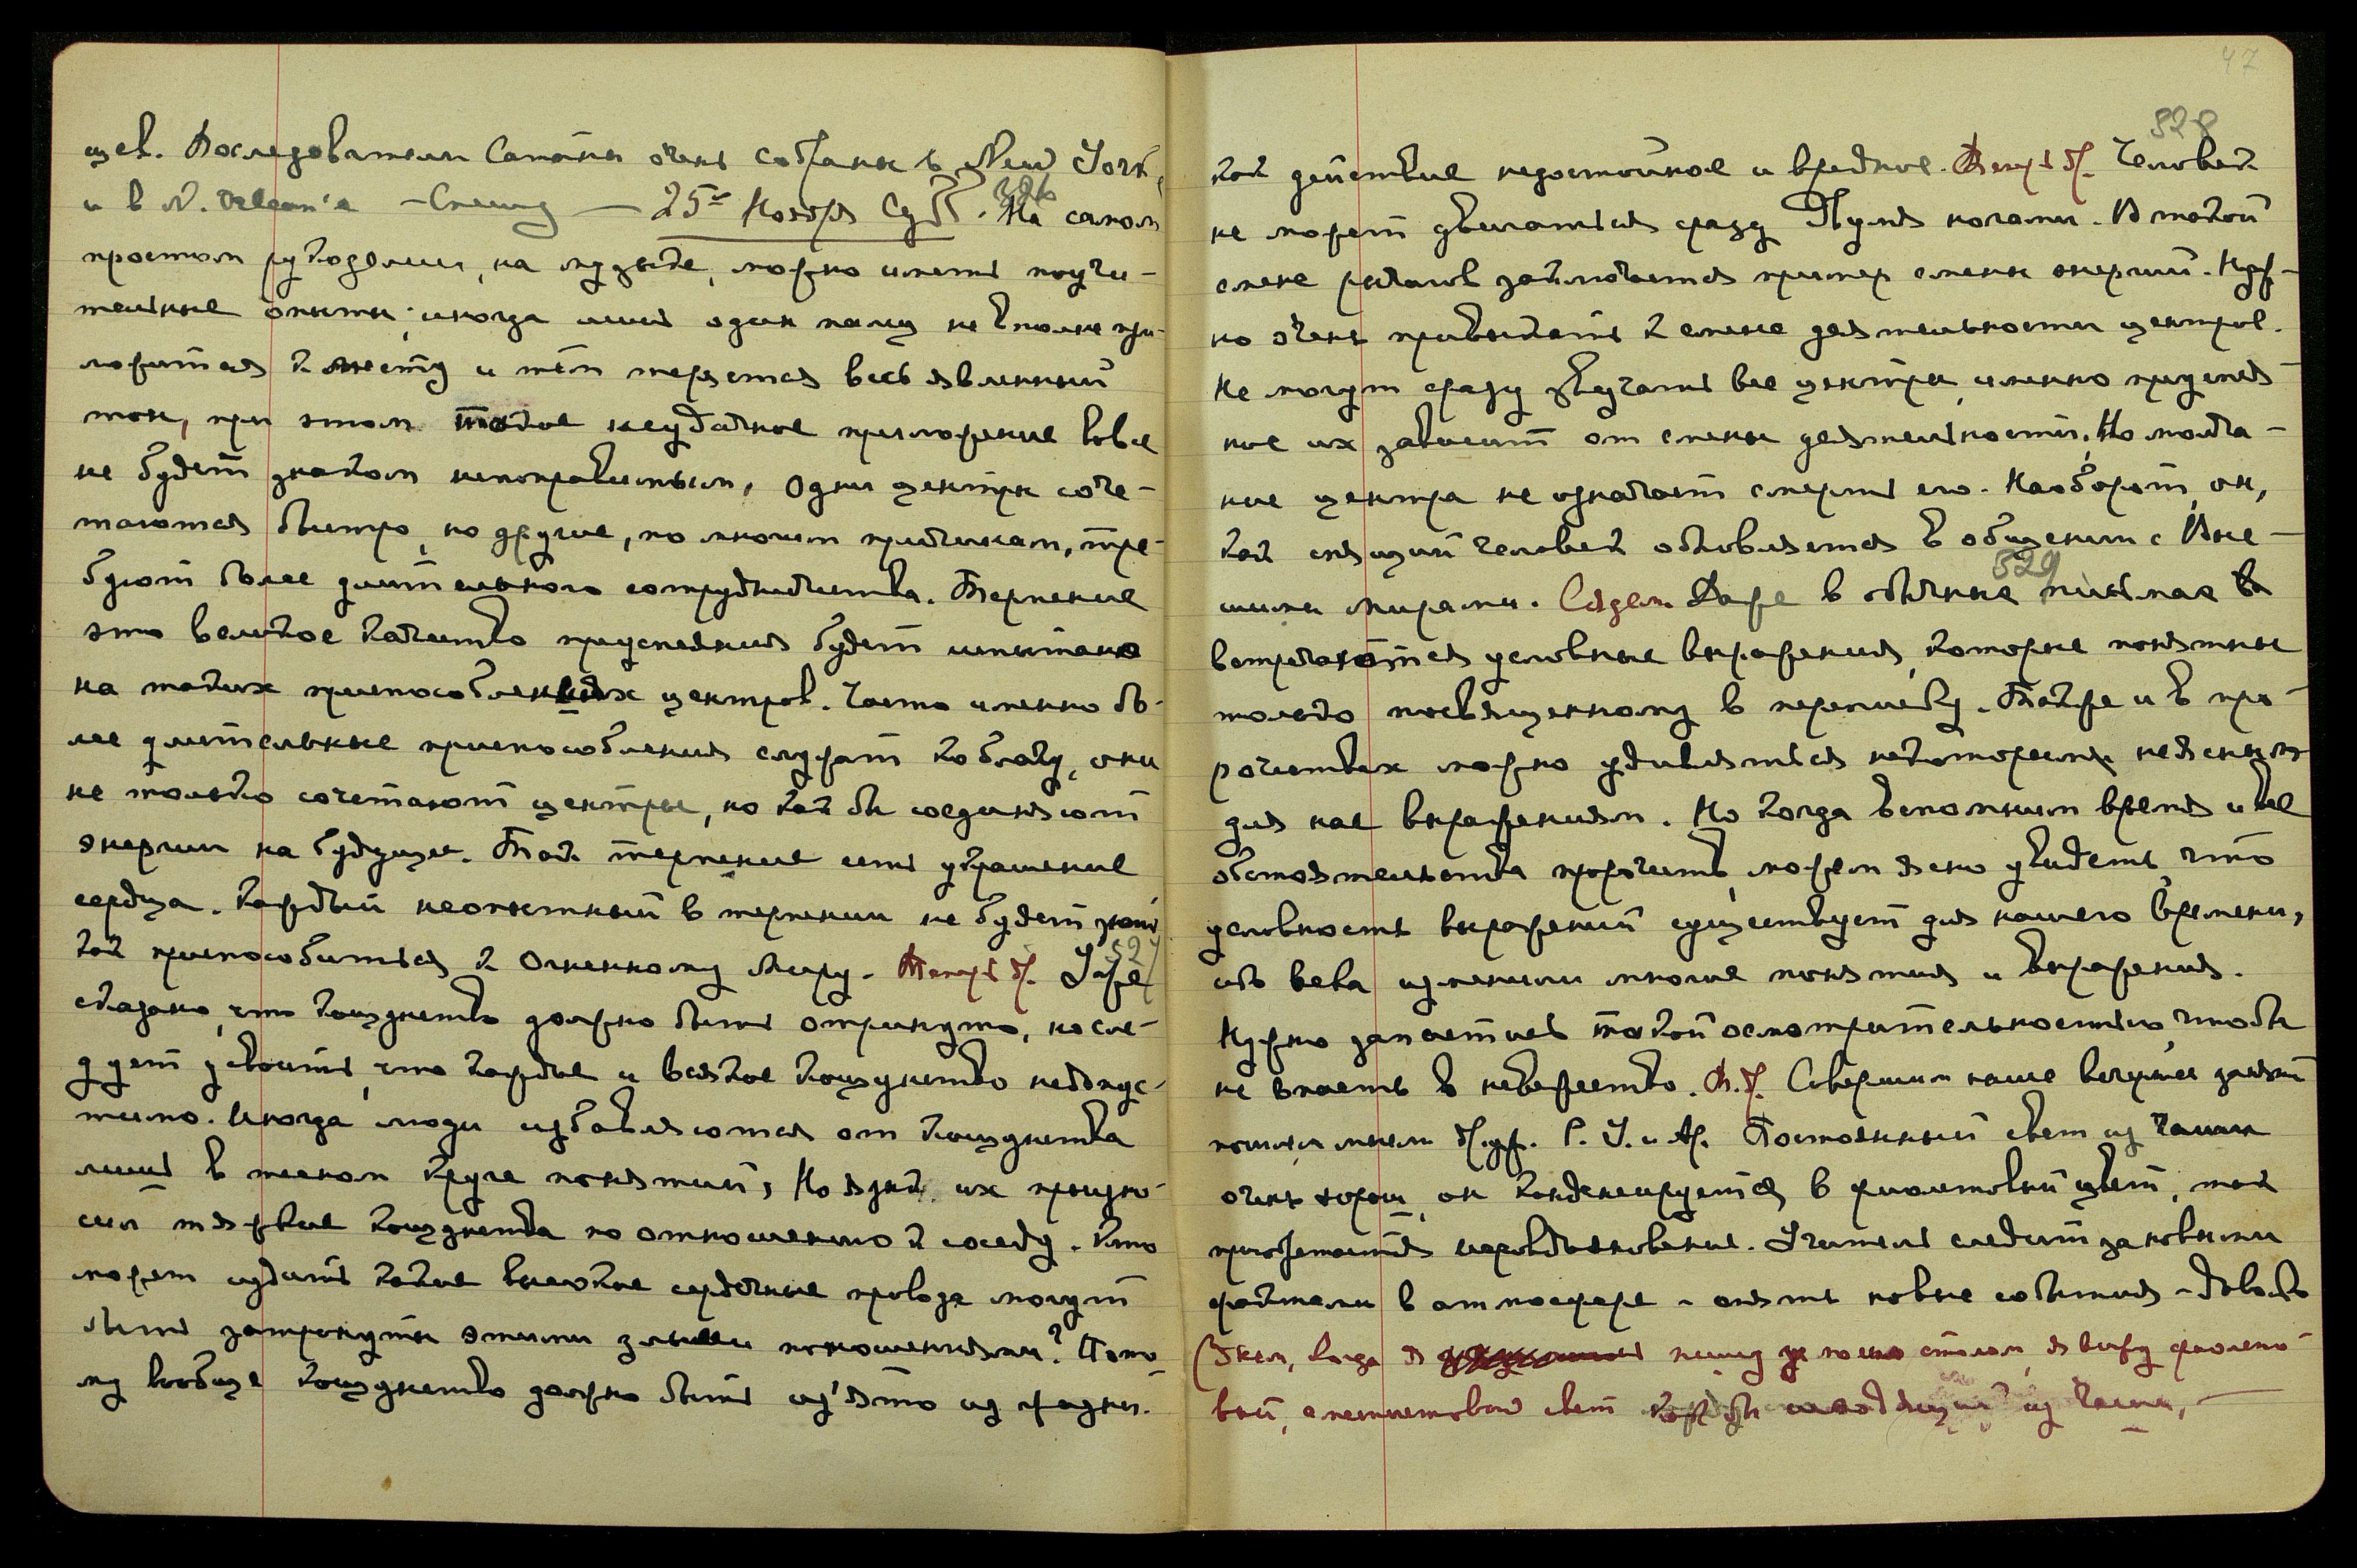 щев. Последователи Сатаны очень собраны в New York,
и в N. Orlean'e – Спешу — 25ᵒᵉ Ноября Субб. 526 На самом
простом рукоделии, на музыке, можно иметь поучи-
тельные опыты; иногда лишь один палец не вполне при-
ложится к месту и тем теряется весь явленный
тон, при этом такое неудачное приложение вовсе
не будет знаком непоправимым. Одни центры соче-
таются быстро, но другие, по многим причинам, тре-
буют более длительного сотрудничества. Терпение
это великое качество преуспеяния будет испытано
на таких приспособлениях центров. Часто именно бо-
лее длительные приспособления служат ко благу, они
не только сочетают центры, но как бы соединяют
энергии на будущее. Так терпение есть украшение
сердца. Каждый неопытный в терпении не будет знать
как приспособиться к Огненному Миру. 527 Уже
сказано, что кощунство должно быть отринуто, но сле-
дует усвоить, что каждое и всякое кощунство недопус-
тимо. Иногда люди избавляются от кощунства
лишь в тесном круге понятий, Но язык их произно-
сил тяжкие кощунства по отношению к соседу. Кто
может судить какие высокие сердечные провода могут
быть затронуты этими злыми поношениями? Пото-
му вообще кощунство должно быть из'ято из жизни.
47
как действие недостойное и вредное. 528 Человек
не может двигаться сразу Двумя ногами. В такой
смене рычагов заключается пример смены энергий. Нуж-
но очень привыкать к смене деятельности центров.
Не могут сразу звучать все центры, именно преуспея-
ние их зависит от смены деятельности. Но молча-
ние центра не означает смерть его. Наоборот, он,
как спящий человек обновляется в общении с Выс-
шими мирами. Сядем. 529 Даже в обычных письмах
встречаются условные выражения, которые понятны
только посвященному в переписку. Также и в про-
рочествах можно удивляться некоторым неясным
для нас выражениям. Но когда вспомним время и все
обстоятельства пророчеств, можем ясно увидеть, что
условность выражений существует для нашего времени,
ибо века изменили многие понятия и выражения.
Нужно запастись такой осмотрительностью, чтобы
не впасть в невежество. Совершим наше вечернее занят.
пошли мысли Р. У. и Постоянный свет из Чаши
очень хорош, он конденсируется в фиолетовый цвет, так
приближается Учитель следит за новыми
фактами в атмосфере – опять новые события – Довольно
(Днем, когда я пишу за моим столом, я вижу фиолето-
вый, аметистовый свет как бы исходящий из Чаши, —